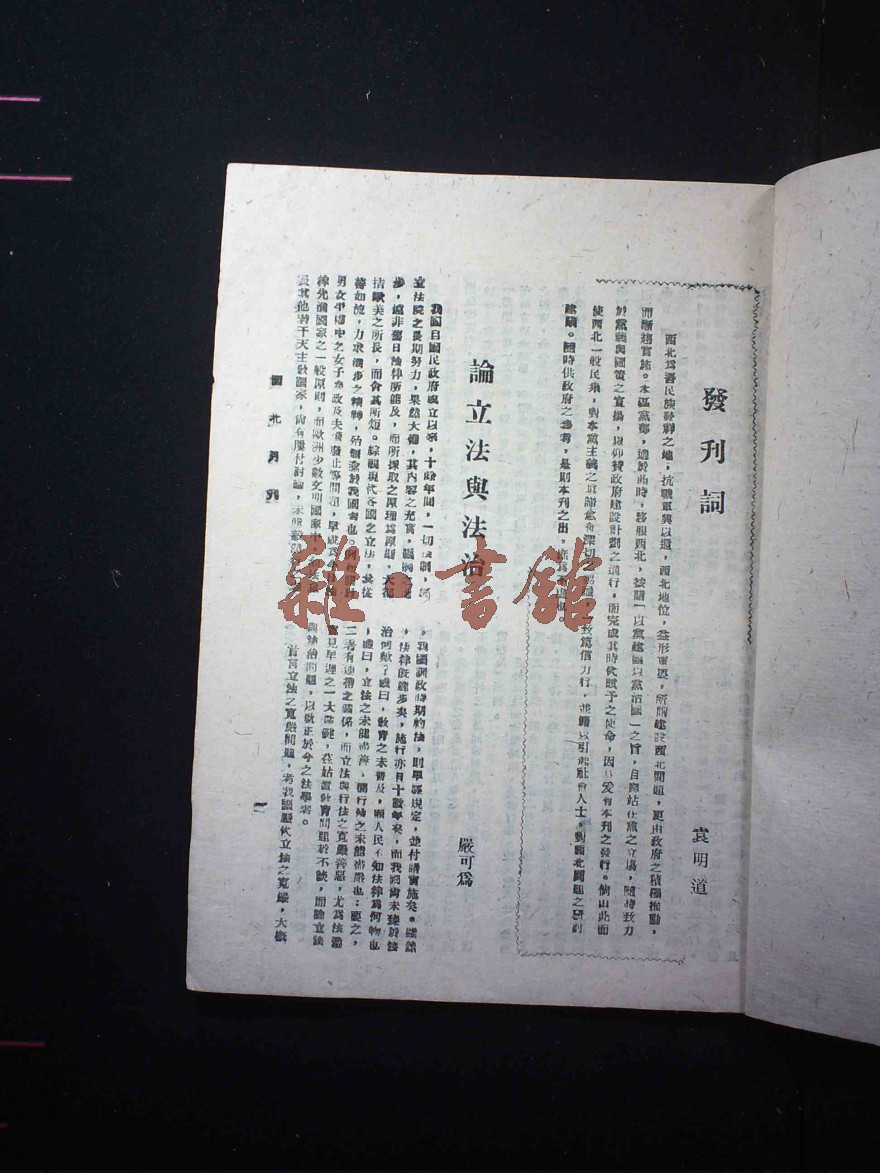 發刊詞
袁明道
西北為吾民族發祥之地，抗戰軍興以還，西北地位，益形重要，所謂建設西北問題，更由政府之積極推動，
而漸趨實施。本區黨部，適於此時，移順西北，按諸一以黨建國以黨治國一之旨，自應站在黨之立場，隨時致力
於黨義與國策之宣揚，以仰贊政府建設計劃之進行，而完成其時代賦予之使命，因
有本刊之發行。倘由此而
使西北一般民衆，對本黨主義之真諦愈有深切
一致篤信力行，並藉以引起社會人士，對西北問題之研討
建議。隨時供政府之參考，是則本刊之出，庶
論立法與法治
嚴可為
我國自國民政府成立以來，十餘年間，一切法制，經
立法院之長期努力，果然大備，其內容之充實，
步，遠非舊日法律所能及，而所採取之原理為原則，大都
拮歐美之所長，而舍其所短。綜觀現代各國之立法，其從
善如流，力求進步之精神，殆
於我國者也。
男女平權中之女子參政及夫
廢止等問題，早成為今日
律先進國家之一般原則，而歐洲少數文明國家
及其他若干天主教國家，尚有
付討論，未能
，我國訓政時期約法，則早經規定，並付諸實施矣。
，法律既進步矣，施行亦有十數年矣，而我國尚未臻於法
治何歟？或曰，教育之未普及，顧人民不知法律為何物也
，或曰，立法之未能盡善，關行法之未能
嚴也；要之，
二者有連帶之關係，而立法與行法之寬嚴善惡，尤為法治
實見早遲之一大關鍵，茲姑置教育問題於不談，而論立法
與法治問題，以就正於今之法學者。
首言立法之寬嚴問題，考我國歷代立法之寬嚴，大概
西北月刊
一
雜·書館